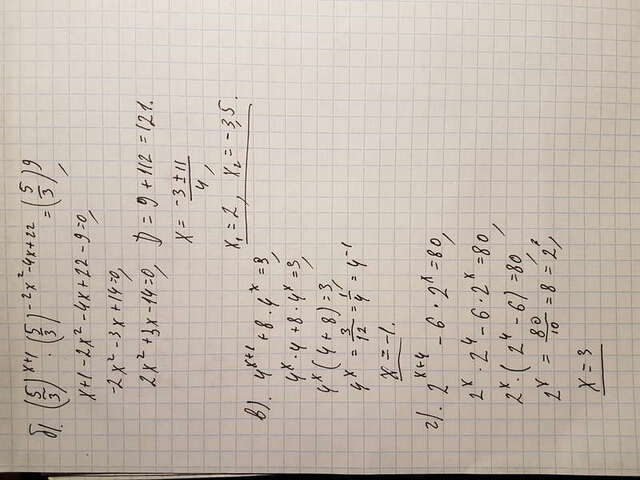 б). (5/3)^(x+1) · (5/3)^(-2x²-4x+22) = (5/3)^9,
x+1-2x²-4x+22-9=0,
-2x²-3x+14=0,
2x²+3x-14=0, D = 9+112 = 121.
x = (-3±11)/4,
x₁ = 2, x₂ = -3,5.
в). 4^(x+1) + 8·4^x = 3,
4^x · 4 + 8 · 4^x = 3,
4^x (4+8) = 3,
4^x = 3/12 = 1/4 = 4^(-1)
x = -1.
г). 2^(x+4) - 6 · 2^x = 80,
2^x · 2^4 - 6 · 2^x = 80,
2^x · (2^4 - 6) = 80,
2^x = 80/10 = 8 = 2^3,
x = 3